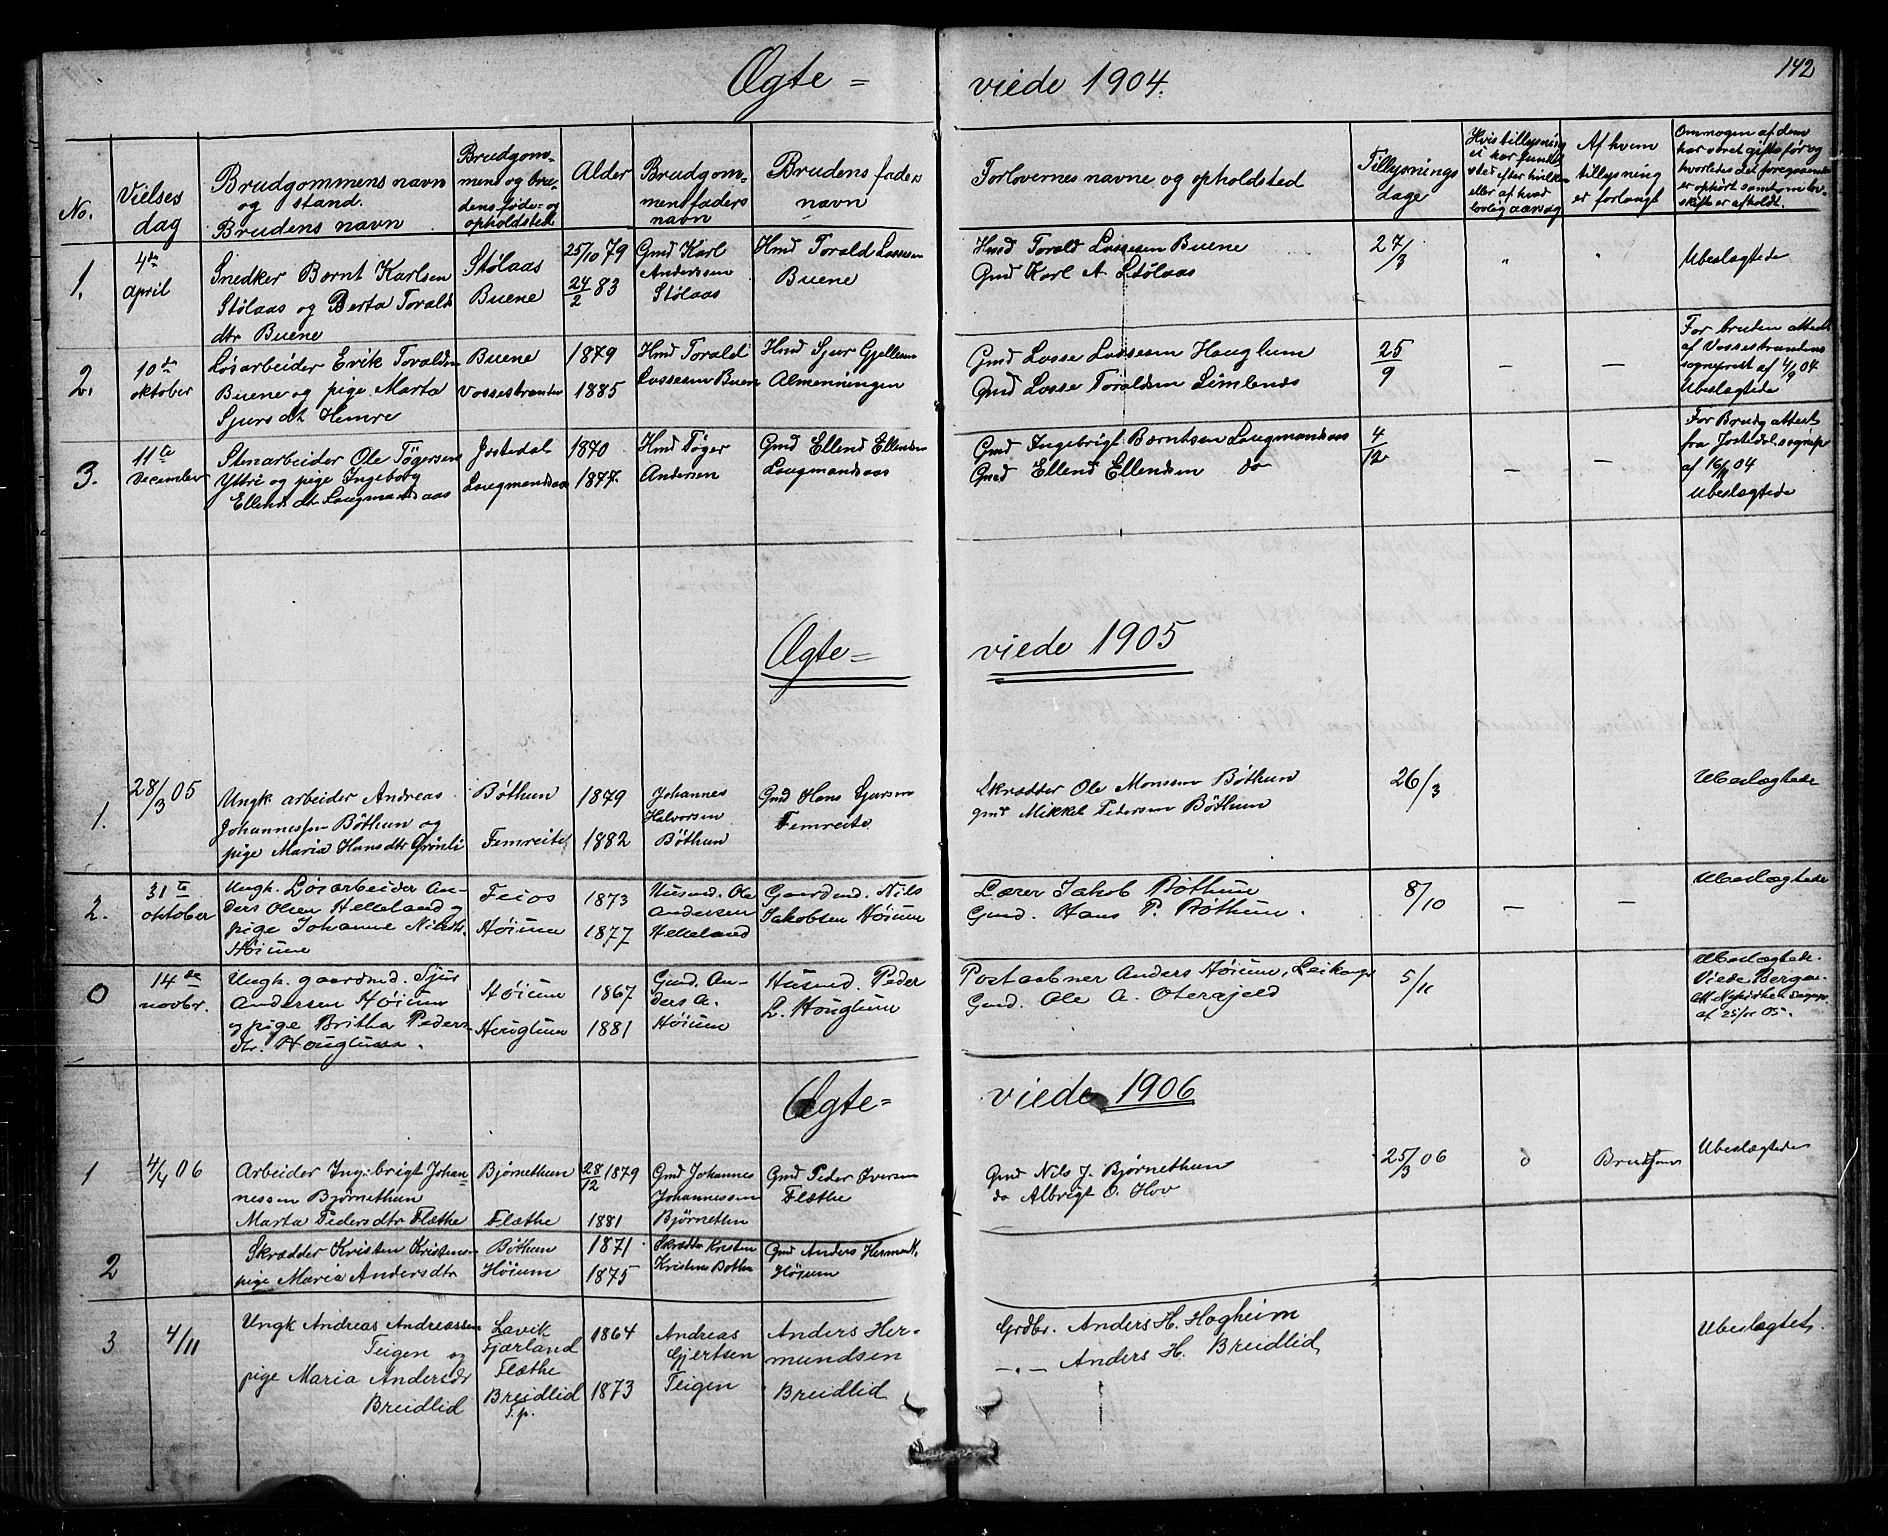 142
Ægte = viede 1904.
No.
Vielses dag
Brudgommens navn og stand. Brudens navn
Brudgommens og brudens føde- og opholdsted
Alder
Brudgommens faders navn
Brudens faders navn
Forlovernes navne og opholdsted
Tillysnings dage
Hvis tillysning ei har fundet sted efter hvilken eller af hvad lovlig aarsag
Af hvem tillysning er forlangt
Om nogen af dem har været gift før og hvorledes det foregaaende er ophørt samt om skifte er afholdt.
1.
4de april
Snedker Bernt Karlsen
Stølaas og Berta Toralds
dtr Buene
Stølaas
Buene
25/10 79
24/2 83
Gmd Karl
Anderssen
Stølaas
Hmd Torald Lassesen
Buene
Hmd Torald Lassesen Buene
Gmd Karl A. Stølaas
27/3
"
"
Ubeslægtede
2.
10de oktober
Løsarbeider Erik Toraldsen
Buene og pige Marta
Sjursdt. Hemre
Buene
Vossestranden
1879
1885
Hmd Torald
Lassesen Buene
Hmd Sjur
Almenningen
Gmd Lasse Lassesen Hauglum
Gmd Lasse Toraldsen
25/9
—
—
For bruden attest
af Vossestrandens
sogneprest af 4/9 04
Ubeslægtede
3.
11te December
Stenarbeider Ole Tøgersen
Yttri og pige Ingeborg
Ellends dt. Laugmandsaas
Jostedal
Laugmandsaas
1840
1847.
Hmd Tøger
Andersen
Gmd Ellend Ellendsen
Laugmandsaas
Gmd Ingebrigt Berntsen Laugmandsaas
Gmd Ellend Ellendsen do
4/12
—
—
For Brudg attest
fra Jostedal sognepr
04
Ubeslægtede
Ægte = viede 1905
1.
28/3 05
Ungk arbeider Andreas
Johannessen Bøthun og
pige Maria Hansdtr Grønli
Bøthun
Femreite
1879
1882
Johannes
Halvorsen
Bøthun
Gmd Hans Sjursen
Femreite
Skrædder Ole Monssen Bøthun
gmd Mikkel Pedersen Bøthun
26/3
Ubeslægtede
2.
31te oktober
Ungk. Løsarbeider An-
ders Olsen Helleland og
pige Johanne Nilsdtr.
Høium
Feios
Høium
1873
1877
Husmd. Ole
Andersen
Helleland
Gaardmd. Nils
Jakobsen Høium
Lærer Jakob Bøthun
Gmd. Hans P. Bøthun.
8/10
—
—
Ubeslægtede
0
14de novbr.
Ungk. gaardmd. Sjur
Andersen Høium
og pige Britha Peders-
dtr. Hauglum.
Høium
Hauglum
1867
1881
Gmd. An-
ders A.
Høium
Husmd. Peder
L. Hauglum
Postaabner Anders Høium, Leikanger
Gmd. Ole A.
5/11
Ubeslægtede.
Viede Bergen
att Nykirken sognepr.
af
Ægte = viede 1906
1
4/4 06
Arbeider Ingebrigt Johan-
nessen Bjørnethun
Marta Pedersdtr Flæthe
Bjørnethun
Flæthe
28/12 1879
1881
Gmd Johannes
Johannessen
Bjørnethn
Gmd Peder Iversen
Flæthe
Gmd Nils J. Bjørnethun
do Albrigt O. Hov
25/3 06
0
Brudgom
Ubeslægtede
2
Skrædder Kristen Kristens.
pige Maria Andersdtr
Bøthun
Høium
1871
1875
Skrædder Kristen
Kristens Bøthn
Gmd Anders
Høium
3
4/11
Ungk Andreas Andreassen
Teigen og
pige Maria Andersdr
Breidlid
Lavik
Fjærland
Flæthe
Breidlid
s.p.
1864
1873
Andreas
Gjertsen
Teigen
Anders Her-
mundsen
Breidlid
Grdbr. Anders H. Hagheim
—„— Anders H. Breidlid
Ubeslægtet.